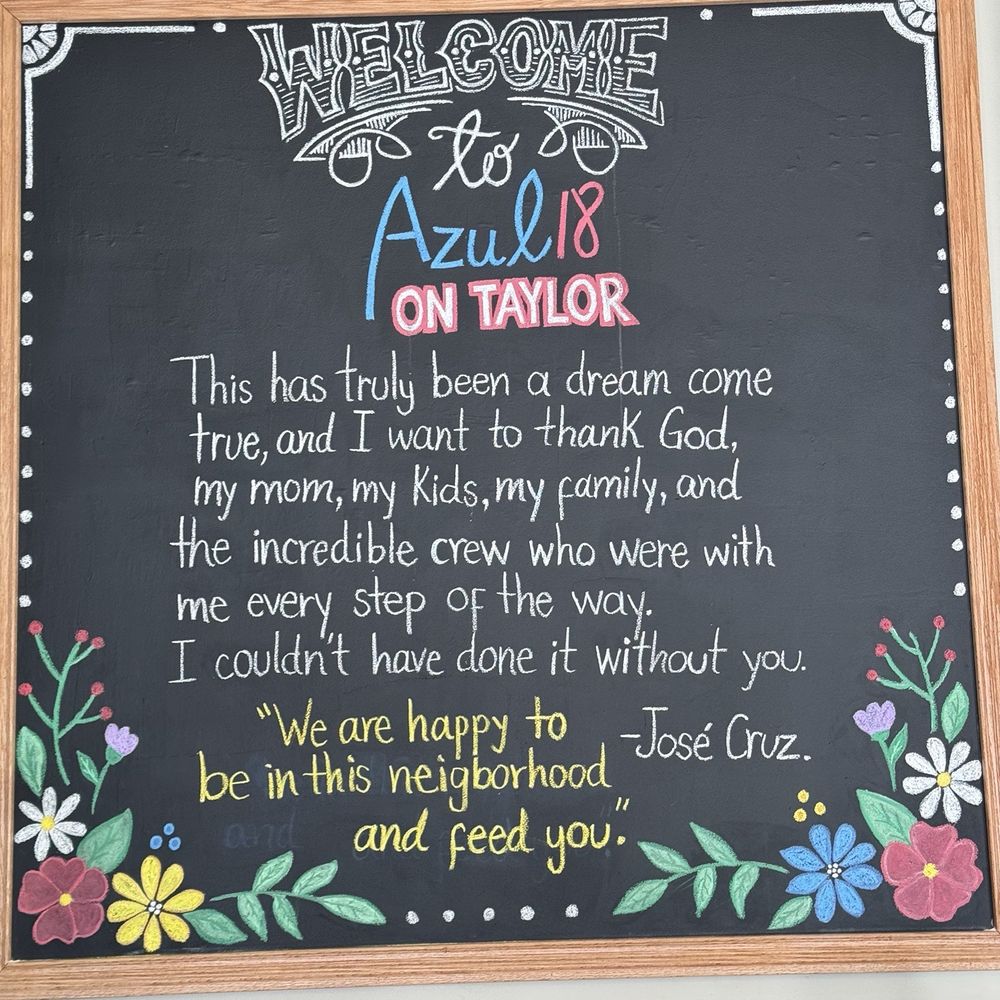 WELCOME
to
Azul 18
ON TAYLOR
This has truly been a dream come
true, and I want to thank God,
my mom, my Kids, my family, and
the incredible crew who were with
me every step of the way.
I couldn't have done it without you.
-José Cruz.
"We are happy to
be in this neigborhood
and feed you."